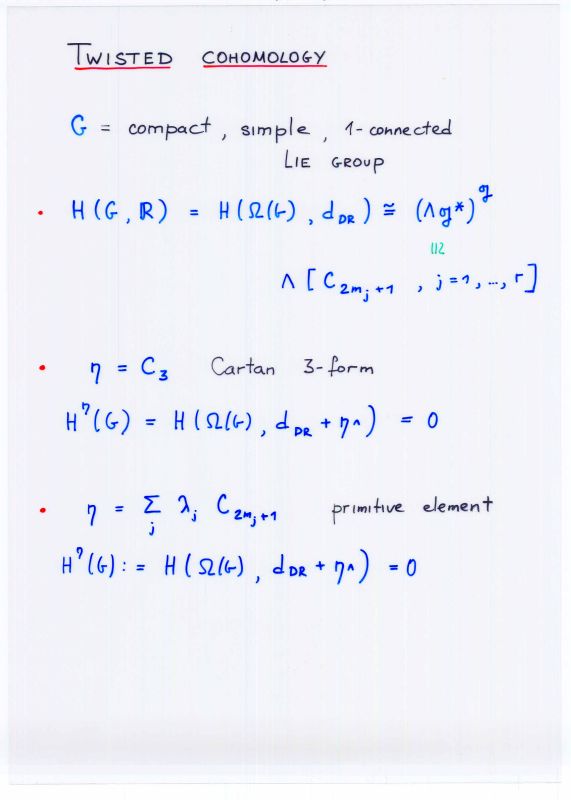 TWISTED COHOMOLOGY
G = compact, simple, 1-connected
LIE GROUP
• H(G, ℝ) = H(Ω(G), d_DR) ≅ (Λ𝔤*)^𝔤
≅
Λ[C_{2m_j+1}, j=1,..., r]
• η = C_3 Cartan 3-form
H^η(G) = H(Ω(G), d_DR + η∧) = 0
• η = Σ_j λ_j C_{2m_j+1} primitive element
H^η(G) := H(Ω(G), d_DR + η∧) = 0